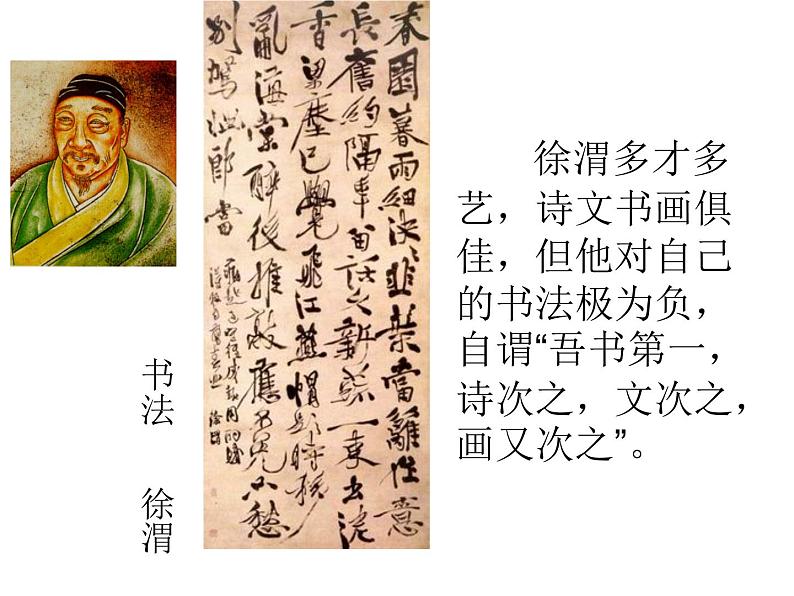 春園暮雨細泱泱韭葉當籬作意
長舊約隔年留話久新蔬一束出泥
香梁塵已覺飛江燕帽影時移
亂海棠醉後推敲應不免只愁
別駕郎當
徐渭多才多
艺，诗文书画俱
佳，但他对自己
的书法极为负，
自谓“吾书第一，
诗次之，文次之，
画又次之”。
书法
徐渭